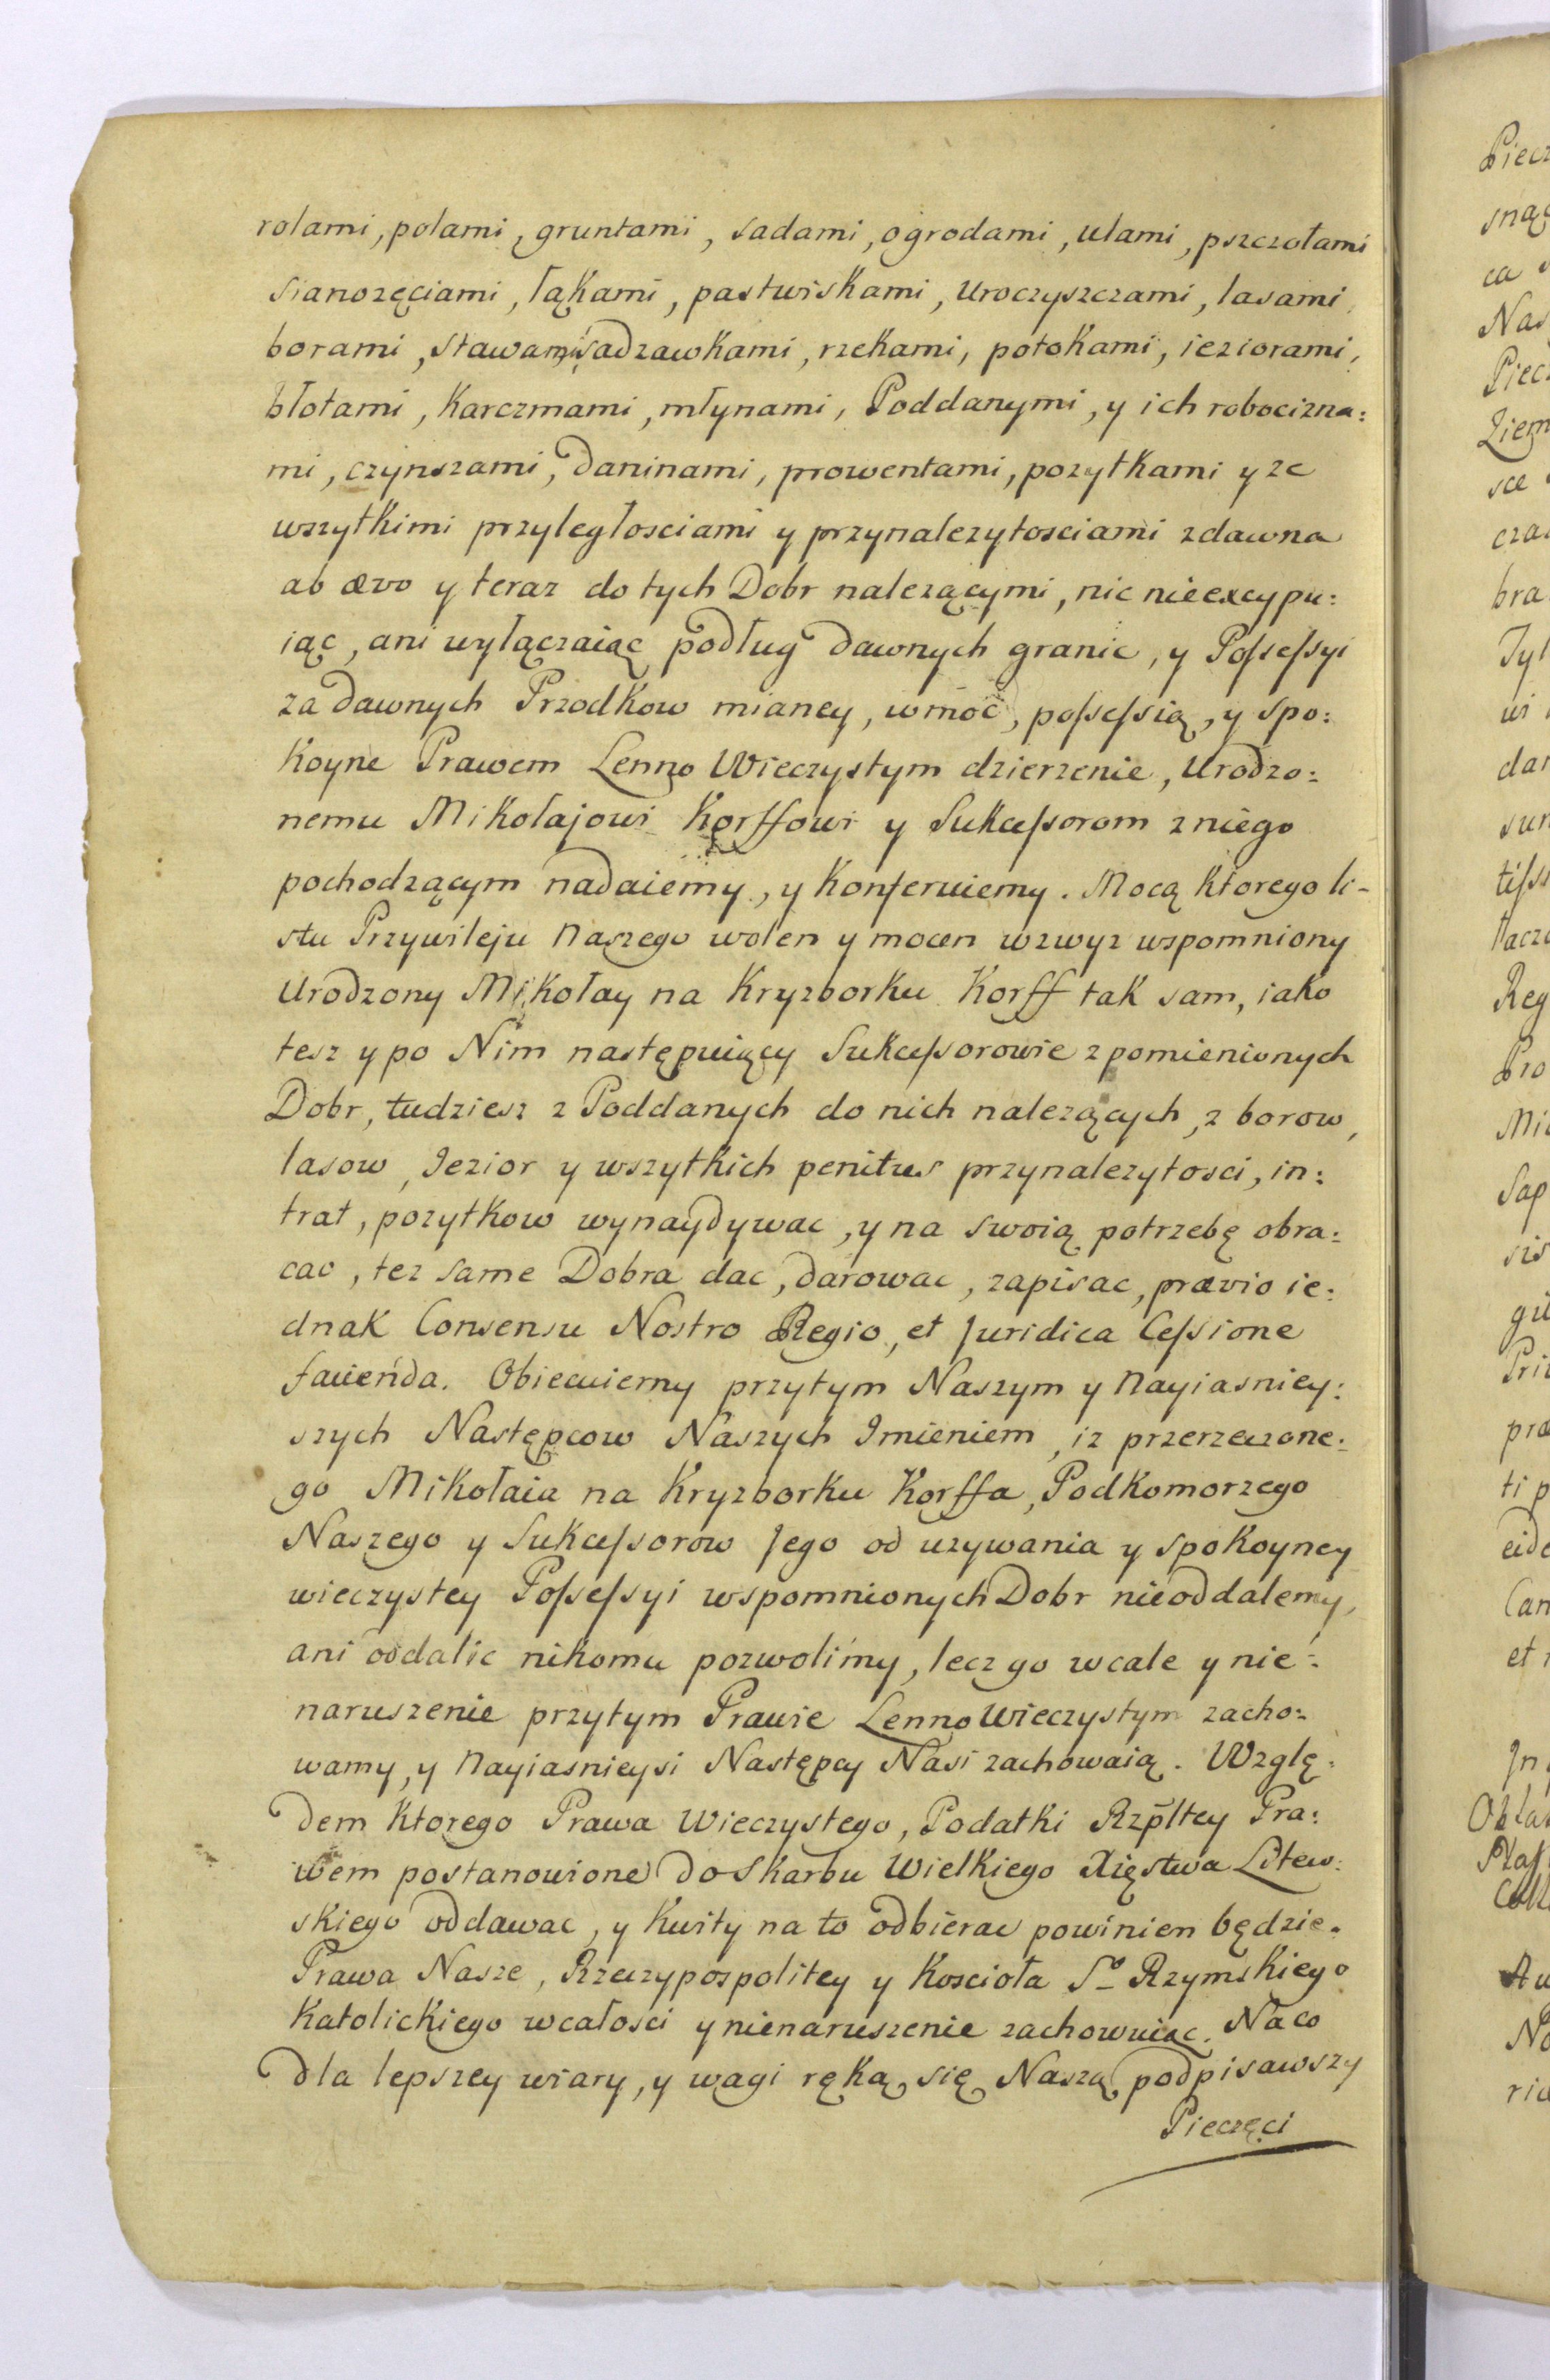 rolami, polami, gruntami, sadami, ogrodami, ulami, pszczołami
sianozęciami, łąkami, pastwiskami, Uroczyszczami, lasami,
borami, stawami, sadzawkami, rzekami, potokami, ieziorami,
błotami, Karczmami, młynami, Poddanymi, y ich robocizna:
mi, czynszami, daninami, prowentami, pozytkami y ze
wszytkimi przyległosciami y przynalezytosciami zdawna
ab ævo y teraz do tych Dobr nalezącymi, nic nieexcypu:
iąc, ani wyłączaiąc podług dawnych granic, y Poſseſsyi
za dawnych Przodkow mianey, w moc, poſseſsią, y spo:
Koyne Prawem Lenno Wieczystym dzierzenie, Urodzo:
nemu Mikołajowi Korffowi y Sukceſsorom z niego
pochodzącym nadaiemy, y Konferuiemy. Mocą Ktorego li-
stu Przywileju Naszego wolen y mocen wzwyz wspomniony
Urodzony Mikołay na Kryzborku Korff tak sam, iako
tesz y po Nim następuiący Sukceſsorowie z pomienionych
Dobr, tudziesz z Poddanych do nich nalezących, z borow,
lasow, Jezior y wszytkich penitus przynalezytosci, in:
trat, pozytkow wynaydywac, y na swoią potrzebę obra:
cac, tez same Dobra dac, darowac, zapisac, prævio ie:
dnak Consensu Nostro Regio, et Juridica Ceſsione
facienda. Obiecuiemy przytym Naszym y Nayiasniey:
szych Następcow Naszych Imieniem, iz przerzeczone:
go Mikołaia na Kryzborku Korffa, Podkomorzego
Naszego y Sukceſsorow Jego od uzywania y spokoyney
wieczystey Poſseſsyi wspomnionych Dobr nieoddalemy,
ani oddalic nikomu pozwolimy, lecz go wcale y nie:
naruszenie przytym Prawie Lenno Wieczystym zacho:
wamy, y Nayiasnieysi Następcy Nasi zachowaią. Wzglę:
dem Ktorego Prawa Wieczystego, Podatki Rzpltey Pra:
wem postanowione do Skarbu Wielkiego Xięstwa Litew:
skiego oddawac, y Kwity na to odbierac powinien będzie.
Prawa Nasze, Rzeczypospolitey y Koscioła So Rzymskiego
Katolickiego wcałosci y nienaruszenie zachowuiąc. Na co
dla lepszey wiary, y wagi ręką się Naszą podpisawszy
Pieczęci